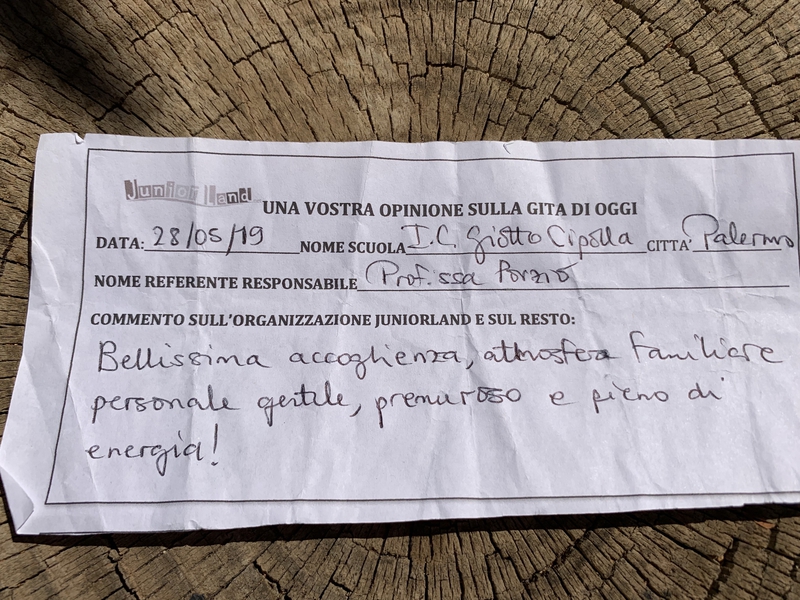 Junior Land
UNA VOSTRA OPINIONE SULLA GITA DI OGGI
DATA: 28/05/19 NOME SCUOLA I.C. Giotto Cipolla CITTA' Palermo
NOME REFERENTE RESPONSABILE Prof.ssa Porzio
COMMENTO SULL'ORGANIZZAZIONE JUNIORLAND E SUL RESTO:
Bellissima accoglienza, atmosfera familiare
personale gentile, premuroso e pieno di
energia!